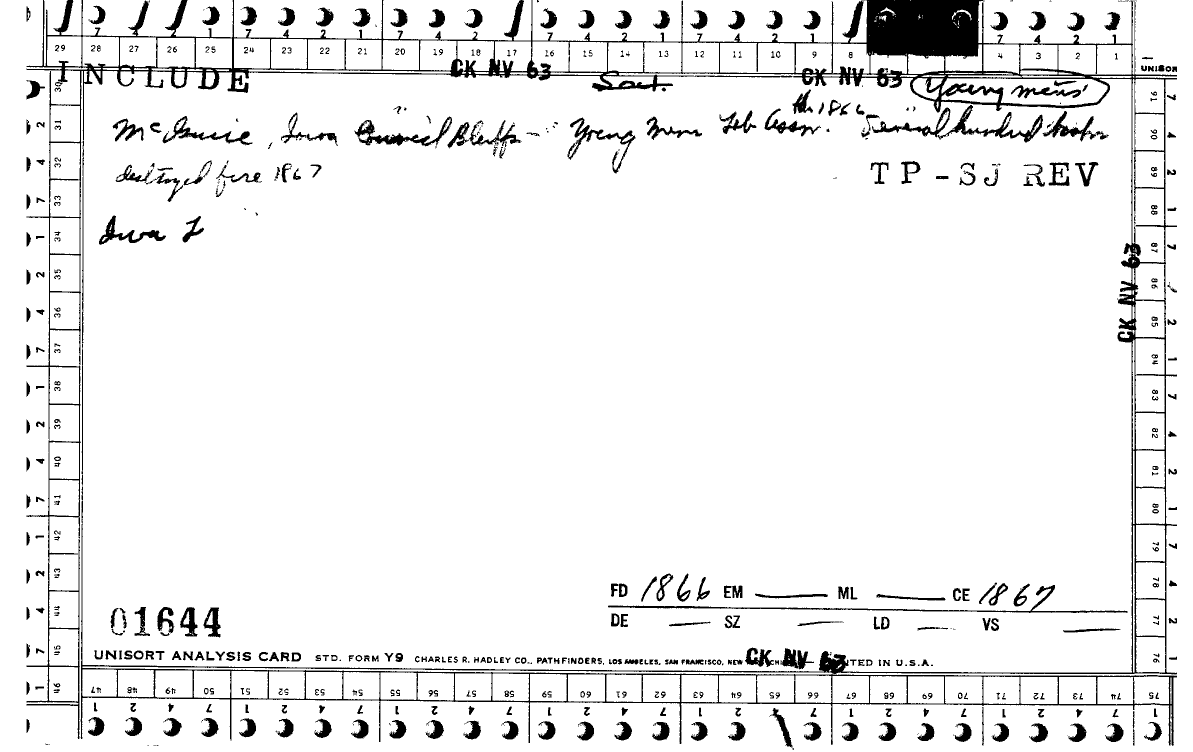 7 4 2 1 7 4 2 1 7 4 2 1 7 4 2 1 7 4 2 1
29 28 27 26 25 24 23 22 21 20 19 18 17 16 15 14 13 12 11 10 9 8 4 3 2 1
INCLUDE CK NV 63 Soct. CK NV 63 Young mens'
UNISOR
th 1866
McGuire, Iowa Council Bluffs - Young Mens Lib Assn. Several hundred books
destroyed fire 1867
TP-SJ REV
Iowa L
CK NV 63
30 31 32 33 34 35 36 37 38 39 40 41 42 43 44 45 46
91 90 89 88 87 86 85 84 83 82 81 80 79 78 77 76 75
FD 1866 EM — ML — CE 1867
DE — SZ — LD — VS —
01644
UNISORT ANALYSIS CARD STD. FORM Y9 CHARLES R. HADLEY CO., PATHFINDERS, LOS ANGELES, SAN FRANCISCO, NEW CK NV 63 PRINTED IN U.S.A.
47 48 49 50 51 52 53 54 55 56 57 58 59 60 61 62 63 64 65 66 67 68 69 70 71 72 73 74
1 2 4 7 1 2 4 7 1 2 4 7 1 2 4 7 1 2 4 7 1 2 4 7 1 2 4 7